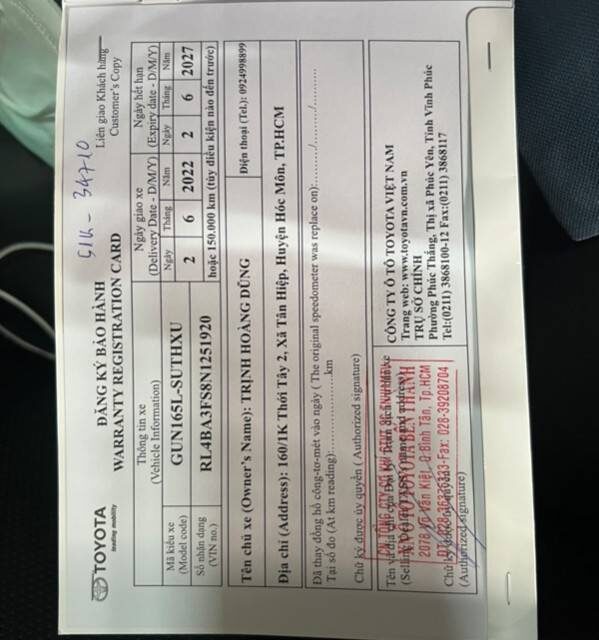 TOYOTA
leading mobility
ĐĂNG KÝ BẢO HÀNH
WARRANTY REGISTRATION CARD
51K - 34710
Liên giao Khách hàng
Customer's Copy
Thông tin xe
(Vehicle Information)
Ngày giao xe
(Delivery Date - D/M/Y)
Ngày hết hạn
(Expiry date - D/M/Y)
Mã kiểu xe
(Model code)
GUN165L-SUTHXU
Ngày Tháng Năm Ngày Tháng Năm
2 6 2022 2 6 2027
Số nhận dạng
(VIN no.)
RL4BA3FS8N1251920
hoặc 150.000 km (tùy điều kiện nào đến trước)
Tên chủ xe (Owner's Name): TRỊNH HOÀNG DŨNG
Điện thoại (Tel.): 0924998899
Địa chỉ (Address): 160/1K Thới Tây 2, Xã Tân Hiệp, Huyện Hóc Môn, TP.HCM
Đã thay đồng hồ công-tơ-mét vào ngày ( The original speedometer was replace on):....../....../......
Tại số đo (At km reading):..................km
Chữ ký được ủy quyền ( Authorized signature)
Tên và địa chỉ của
(Selling
TOYOTA BẾN THÀNH
2078 Võ Văn Kiệt, Q.Bình Tân, Tp.HCM
Fax: 028-39208704
Chữ ký
(Authorized signature)
CÔNG TY Ô TÔ TOYOTA VIỆT NAM
Trang web: www.toyotavn.com.vn
TRỤ SỞ CHÍNH
Phường Phúc Thắng, Thị xã Phúc Yên, Tỉnh Vĩnh Phúc
Tel:(0211) 3868100-12 Fax:(0211) 3868117